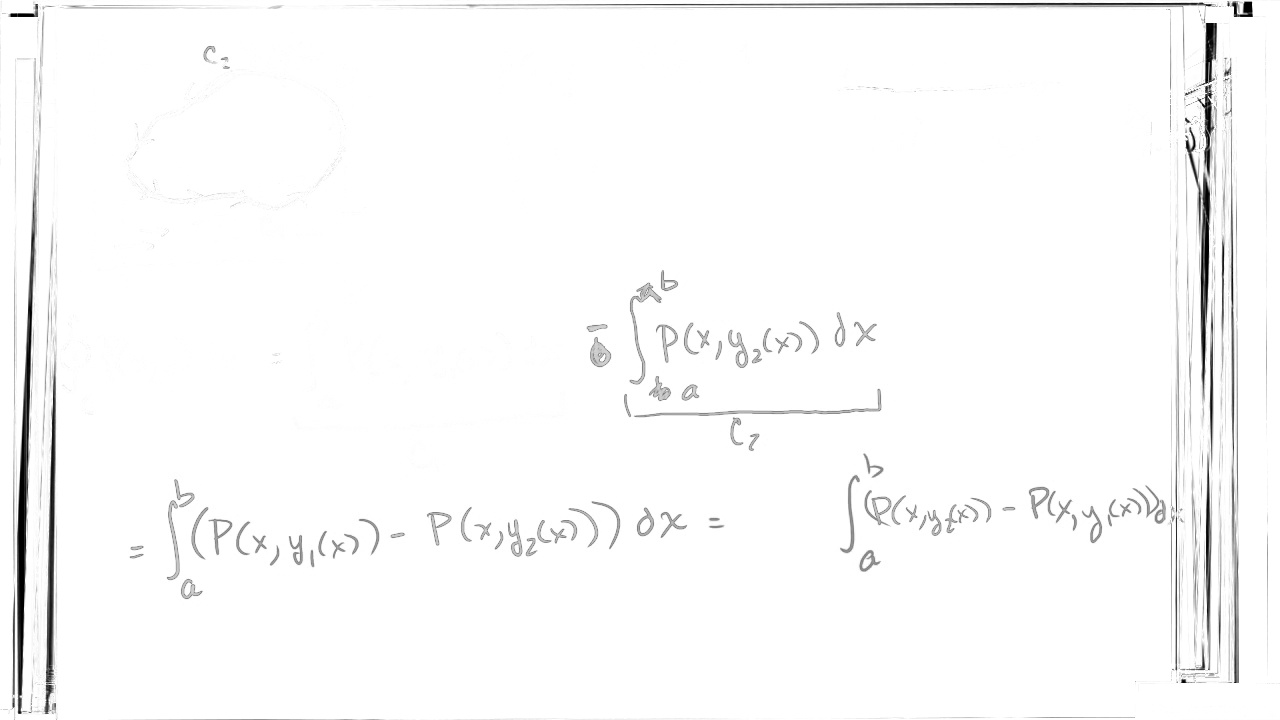 C₂
- ∫ₐᵇ P(x, y₂(x)) dx
C₂
= ∫ₐᵇ (P(x, y₁(x)) - P(x, y₂(x))) dx = ∫ₐᵇ (P(x, y₂(x)) - P(x, y₁(x))) d